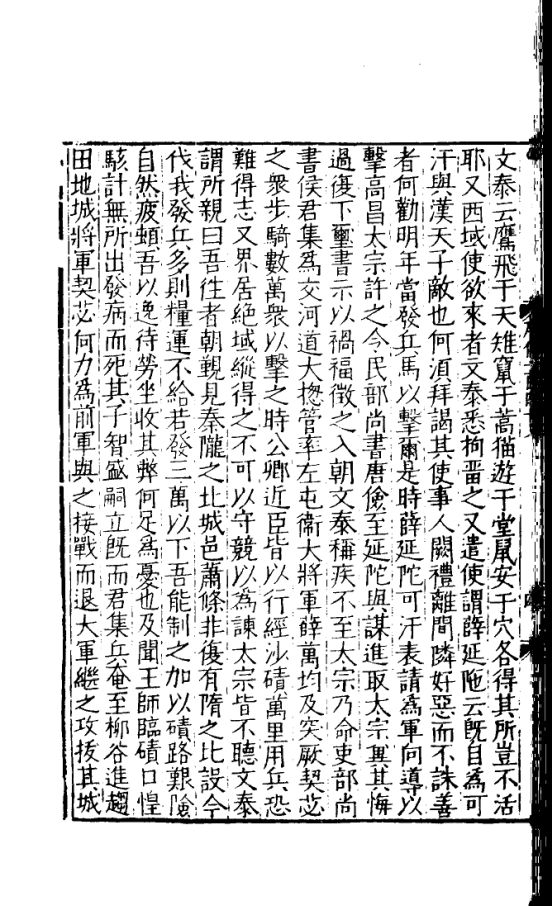 文泰云鷹飛于天雉竄于蒿猫遊于堂鼠安于穴各得其所豈不活
耶又西域使欲來者文泰悉拘畱之又遣使謂薛延陁云旣自爲可
汗與漢天子敵也何湏拜謁其使事人闕禮離間隣好惡而不誅善
者何勸明年當發兵馬以擊爾是時薛延陀可汗表請爲軍向導以
擊高昌太宗許之令民部尚書唐儉至延陀與謀進取太宗兾其悔
過復下璽書示以禍福徵之入朝文泰稱疾不至太宗乃命吏部尚
書侯君集爲交河道大揔管率左屯衞大將軍薛萬均及突厥契苾
之衆步騎數萬衆以擊之時公卿近臣皆以行經沙磧萬里用兵恐
難得志又界居絕域縱得之不可以守競以爲諫太宗皆不聽文泰
謂所親曰吾往者朝覲見秦隴之北城邑蕭條非復有隋之比設今
伐我發兵多則糧運不給若發三萬以下吾能制之加以磧路艱險
自然疲頓吾以逸待勞坐收其弊何足爲憂也及聞王師臨磧口惶
駭計無所出發病而死其子智盛嗣立旣而君集兵奄至柳谷進趨
田地城將軍契苾何力爲前軍與之接戰而退大軍繼之攻拔其城